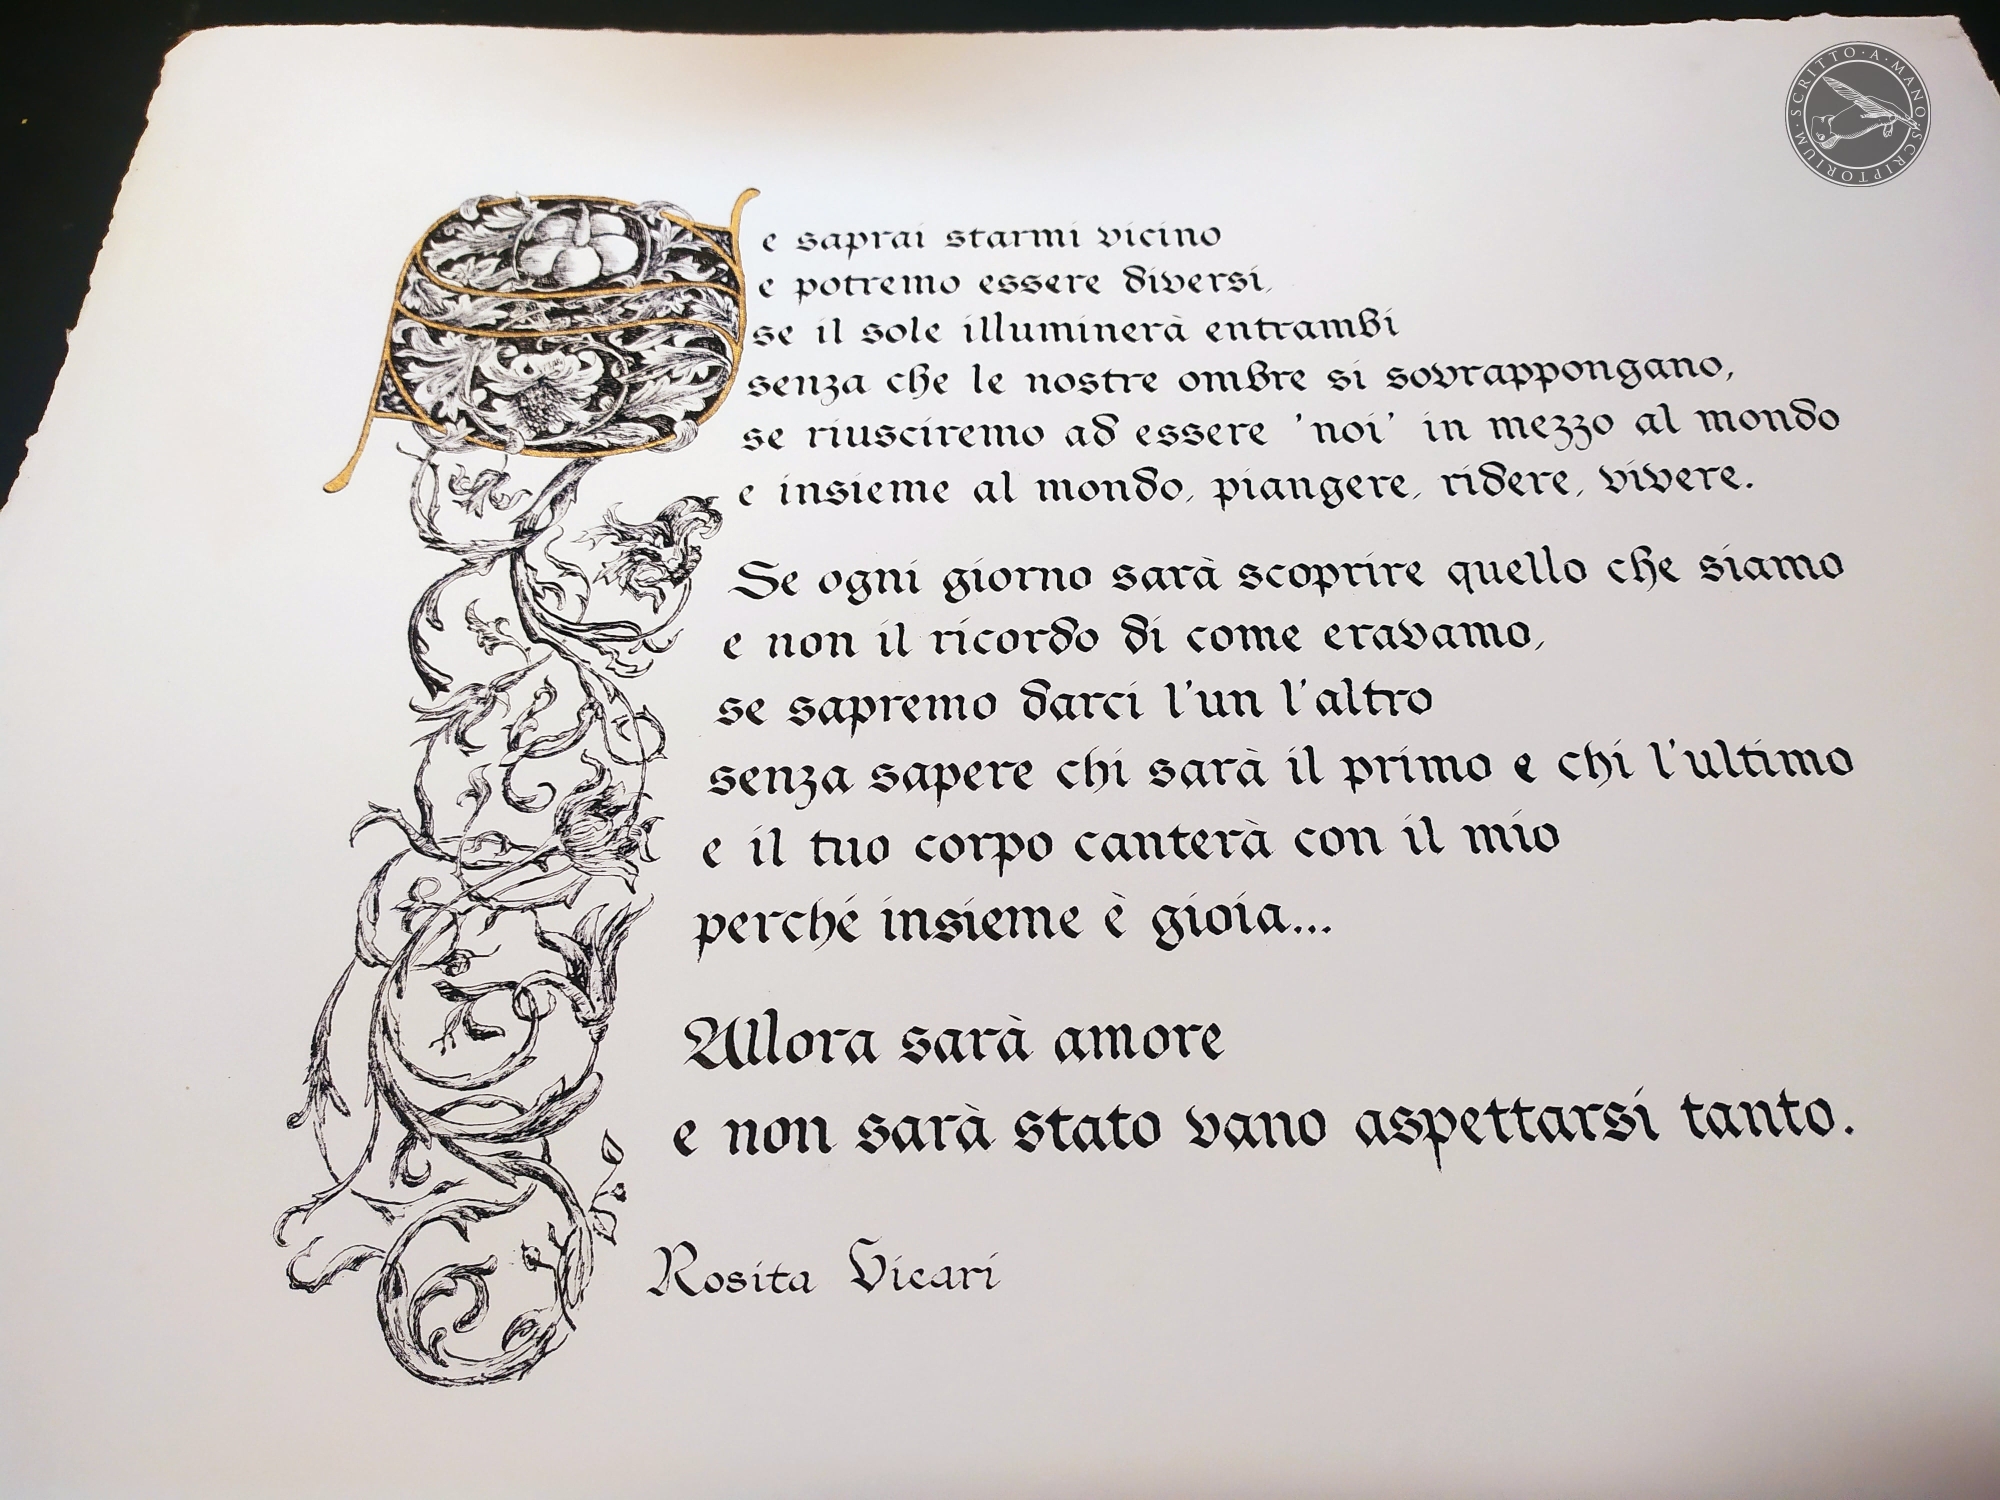 Se saprai starmi vicino
e potremo essere diversi,
se il sole illuminerà entrambi
senza che le nostre ombre si sovrappongano,
se riusciremo ad essere 'noi' in mezzo al mondo
e insieme al mondo, piangere, ridere, vivere.
Se ogni giorno sarà scoprire quello che siamo
e non il ricordo di come eravamo,
se sapremo darci l'un l'altro
senza sapere chi sarà il primo e chi l'ultimo
e il tuo corpo canterà con il mio
perché insieme è gioia...
Allora sarà amore
e non sarà stato vano aspettarsi tanto.
Rosita Vicari
SCRITTO·A·MANO·SCRIPTORIUM·